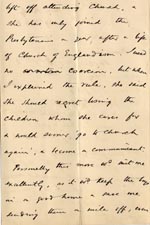 left off attending Church, a
she has only joined the
Presbyterians a year, after a life
of Church of Englandism. I used
no coercion, but when
I explained the rule, she said
she should regret losing the
children whom she cares for
& would sooner go to Church
again, & become a communicant.
Personally this move wd suit me
excellently, as it wd keep the boys
in a good home & save me
sending them a mile off, even